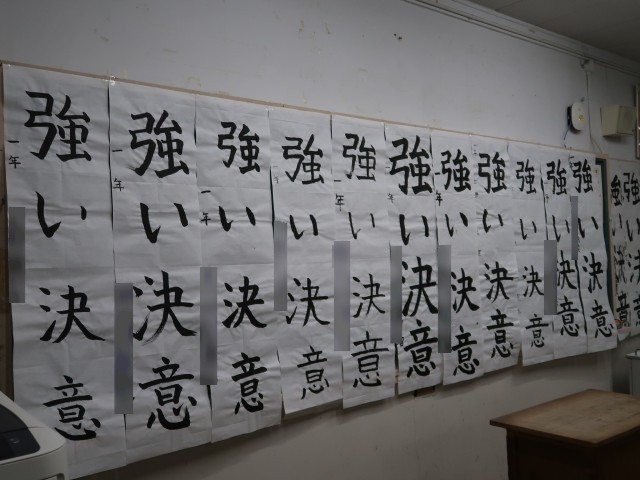 強い決意
一年
強い決意
一年
強い決意
一年
強い決意
強い決意
一年
強い決意
強い決意
強い決意
強い決意
強い決意
強い決意
強い決意
強い決意